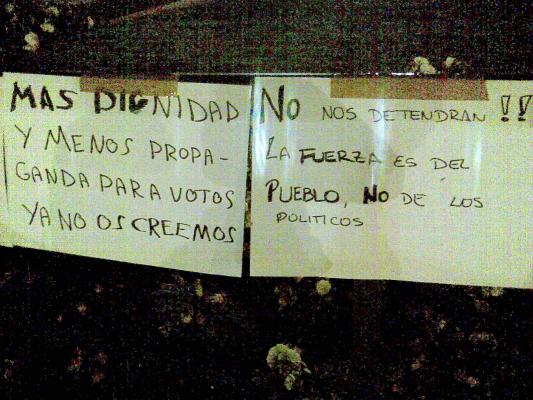 MAS DIGNIDAD
Y MENOS PROPA-
GANDA PARA VOTOS
YA NO OS CREEMOS
NO NOS DETENDRAN !!
LA FUERZA ES DEL
PUEBLO, NO DE LOS
POLITICOS